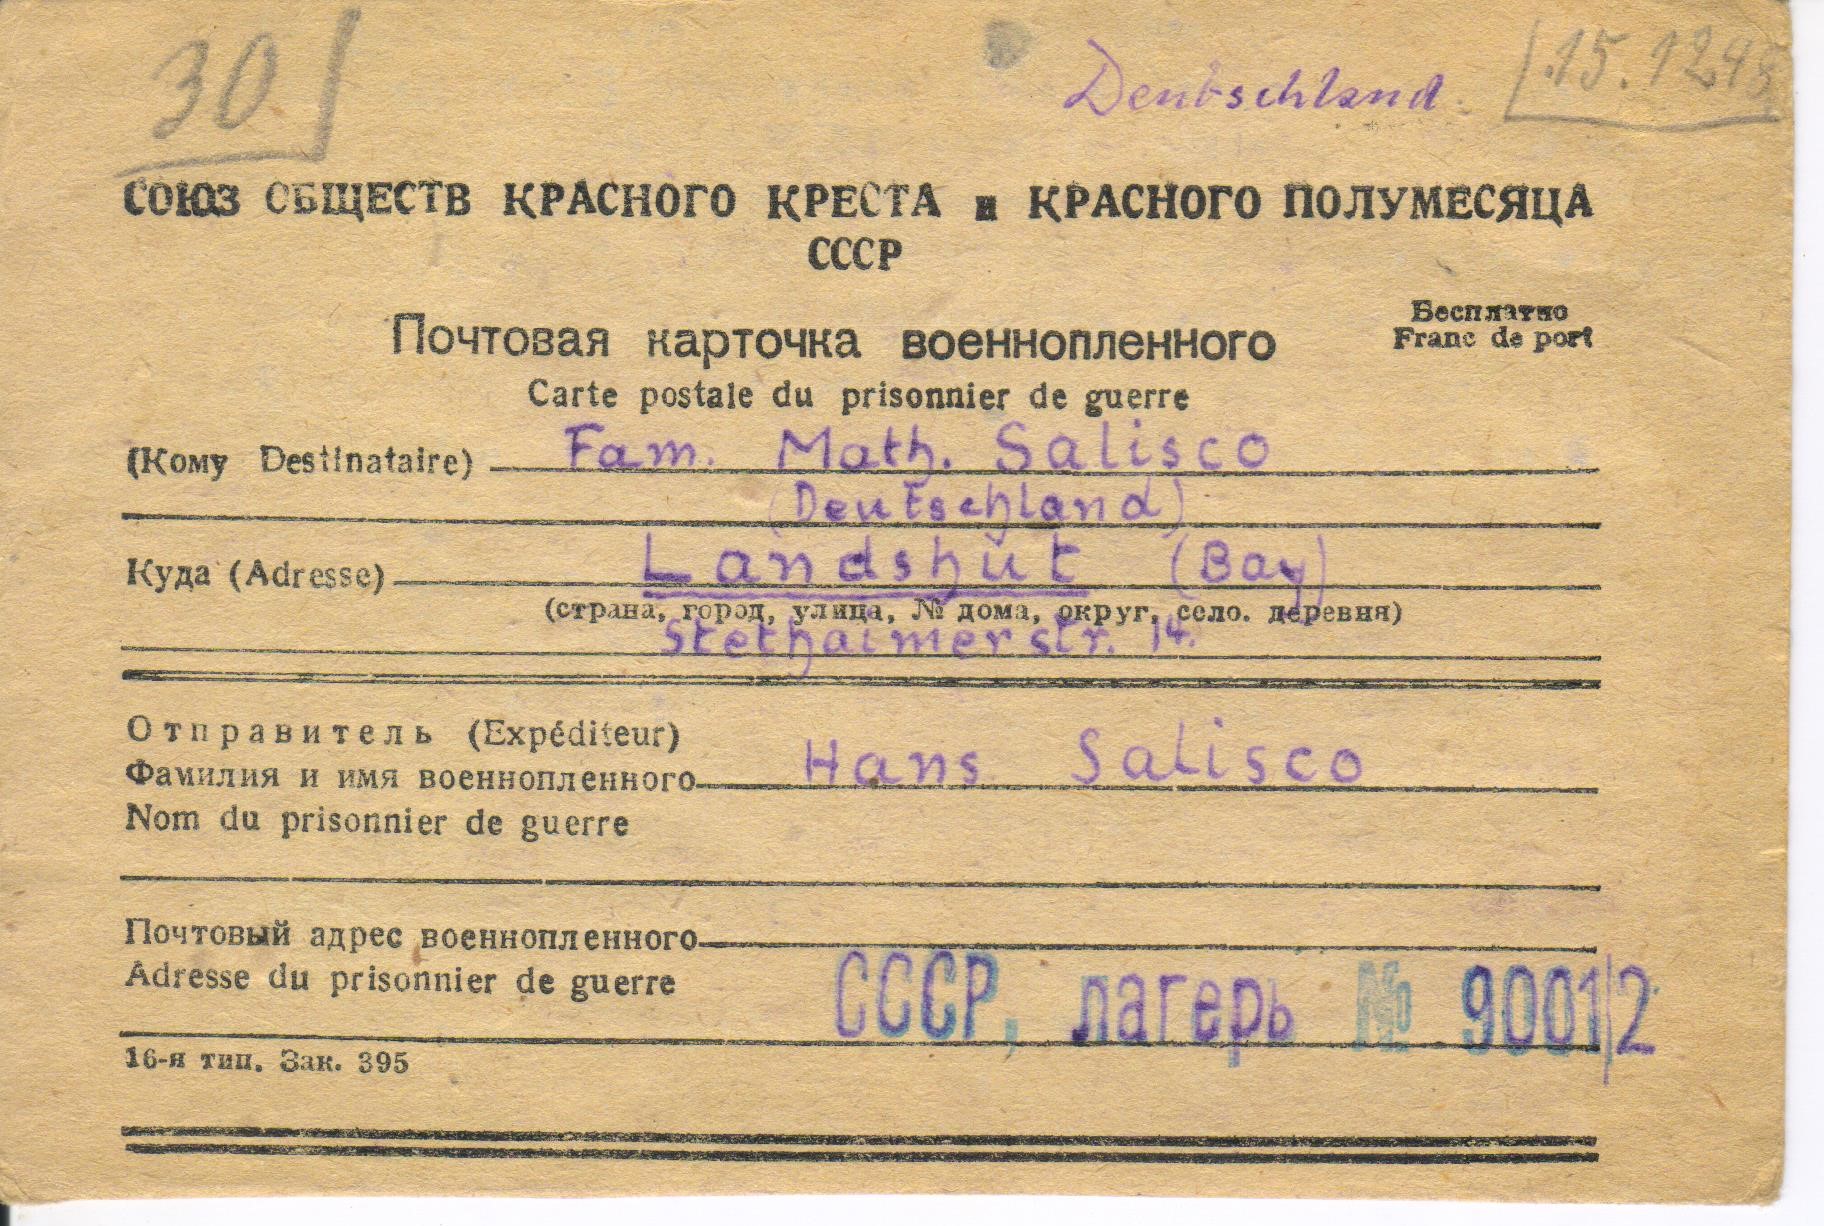 30
Deutschland
15.1248
СОЮЗ ОБЩЕСТВ КРАСНОГО КРЕСТА и КРАСНОГО ПОЛУМЕСЯЦА
СССР
Бесплатно
Franc de port
Почтовая карточка военнопленного
Carte postale du prisonnier de guerre
(Кому Destinataire) Fam. Math. Salisco
(Deutschland)
Куда (Adresse) Landshut (Bay)
(страна, город, улица, № дома, округ, село. деревня)
Stethaimerstr. 14.
Отправитель (Expéditeur)
Фамилия и имя военнопленного Hans Salisco
Nom du prisonnier de guerre
Почтовый адрес военнопленного
Adresse du prisonnier de guerre
СССР, лагерь № 9001/2
16-я тип. Зак. 395